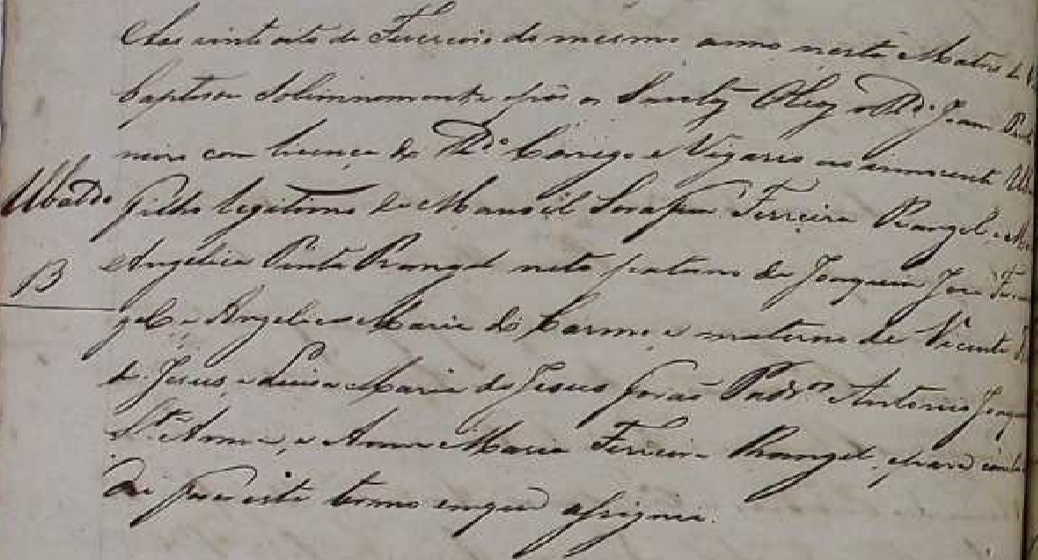 Aos vinte oito de Fevereiro do mesmo anno nesta Matriz de
baptisou Solemnemente e pôs os Santos Oleos o Rdo João
com licença do Rdo Conego e Vigario ao innocente
Ubaldo filho legitimo de Manoel Serafim Ferreira Rangel, e
B Angelica Pinto Rangel neto paterno de Joaquim José
gel, e Angelica Maria do Carmo, e materno de Vicente
de Jesus, e Luisa Maria de Jesus forão Padros Antonio
Sta Anna, e Anna Maria Ferreira Rangel, e para constar
fis este termo em que assignei.